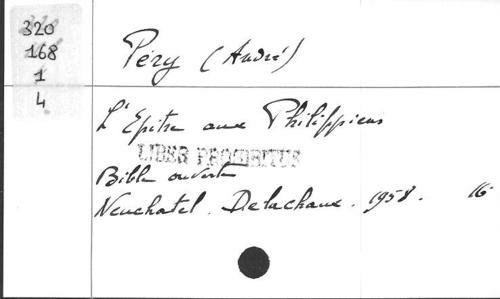 320
168
1
4
Péry (André)
L'Epitre aux Philippiens
LIBER PROHIBITUS
Bible ouverte
Neuchatel. Delachaux. 1958. 16